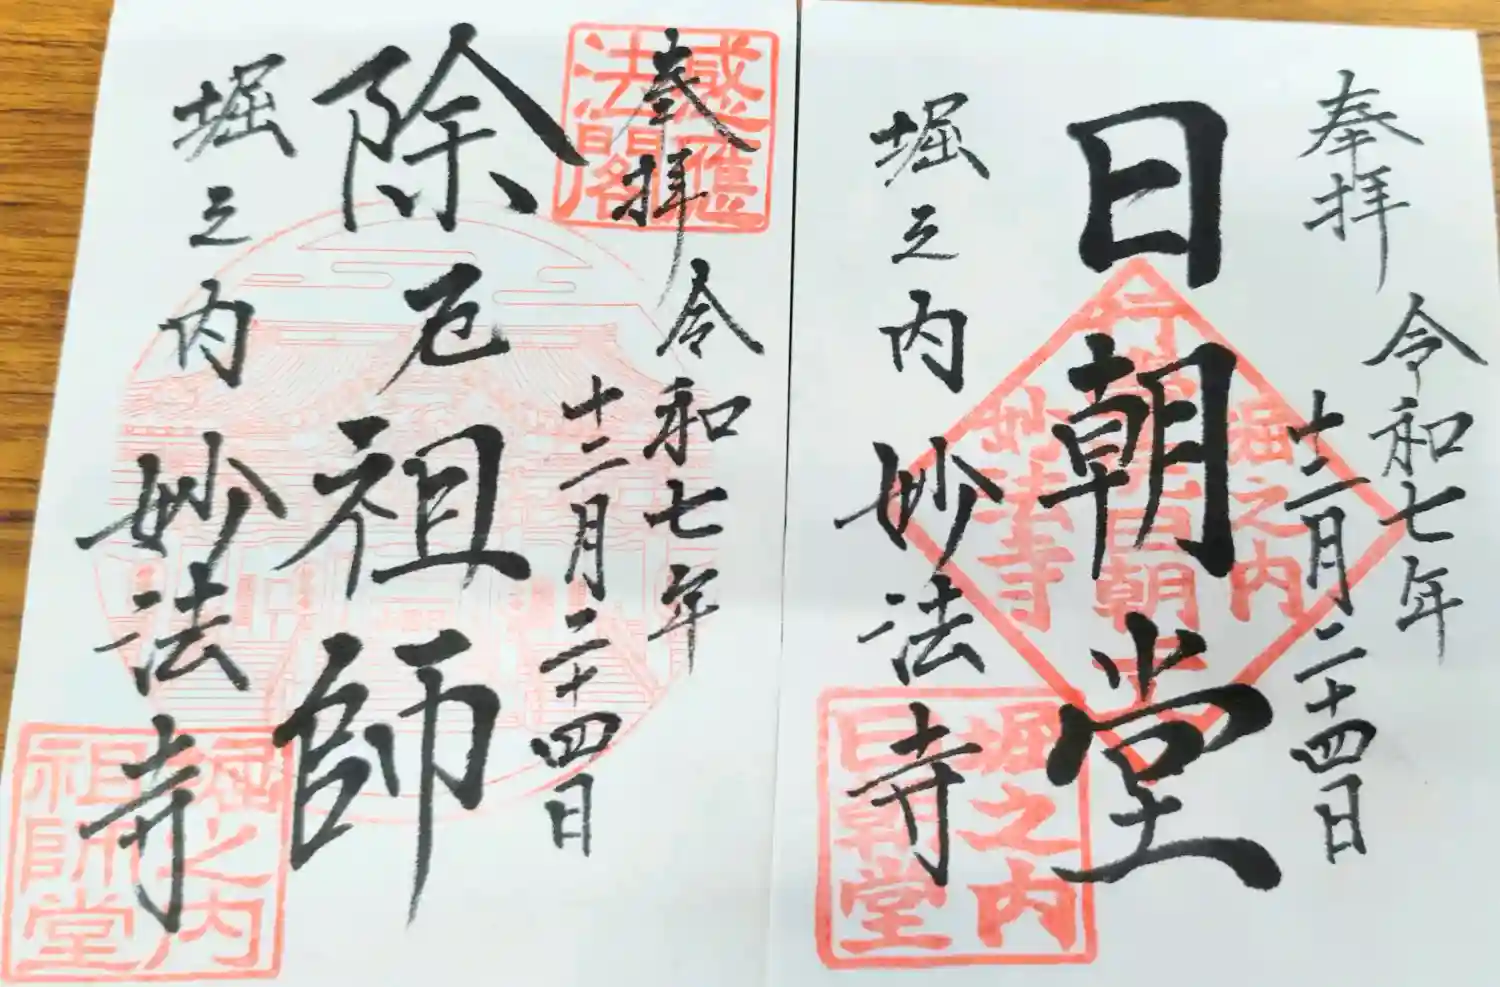 奉拝
令和七年
十二月二十四日
日朝堂
堀之内
妙法寺
堀之内
妙法寺
堀之内
日朝堂
奉拝
令和七年
十二月二十四日
除厄祖師
堀之内
妙法寺
感應
法閣
堀之内
祖師堂